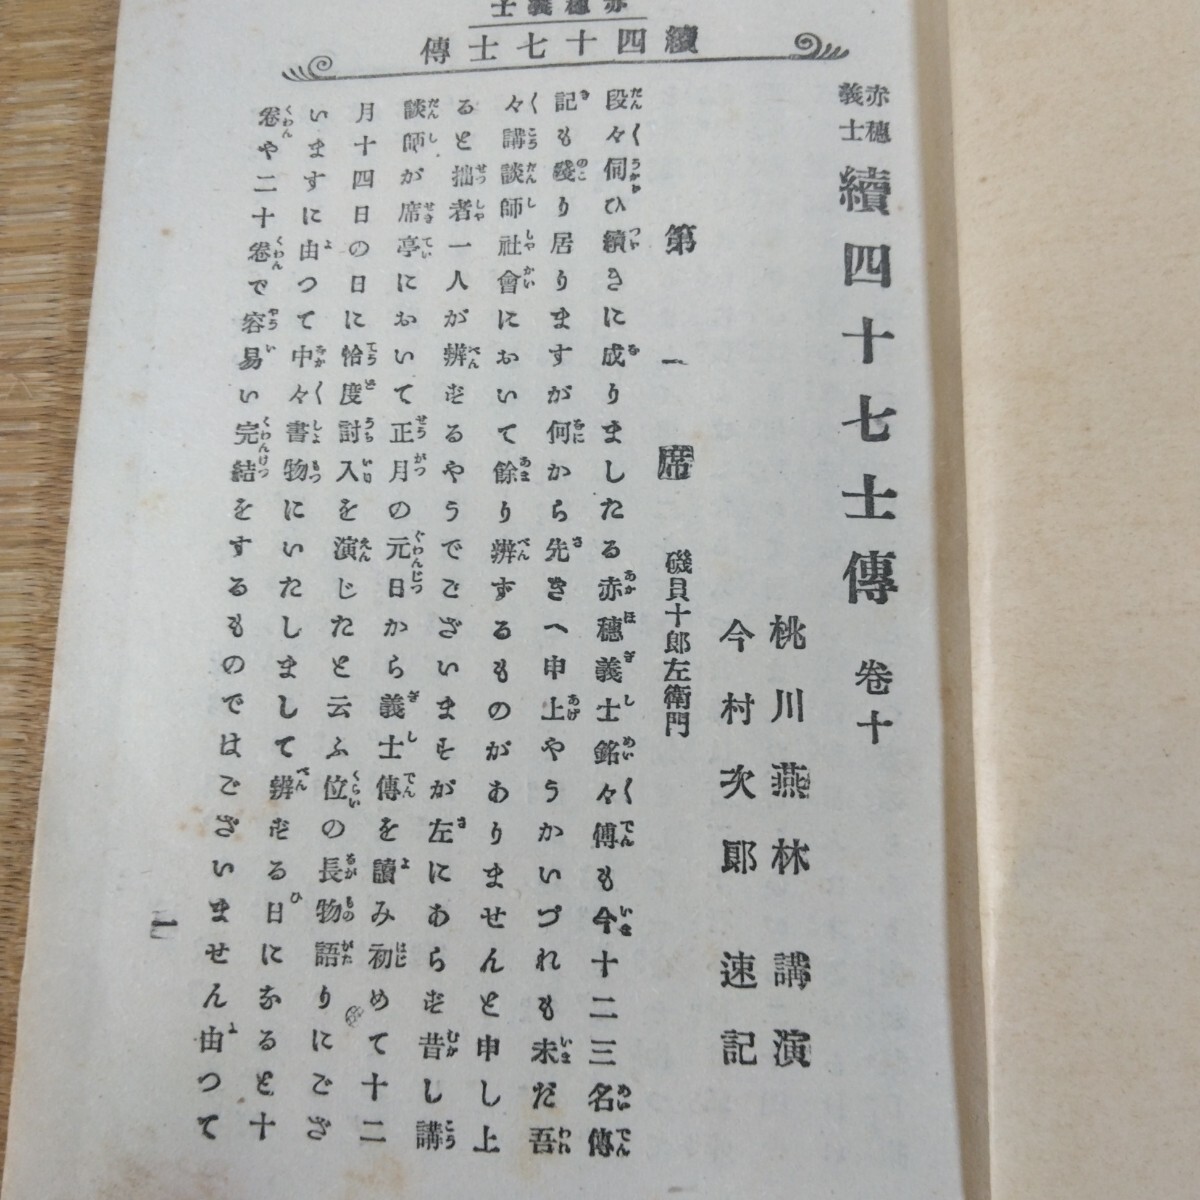 赤穗義士
續四十七士傳
赤穗義士 續四十七士傳 卷十
桃川燕林 講演
今村次郎 速記
第一席 磯貝十郎左衛門
段々伺ひ續きに成りましたる赤穗義士銘々傳も今十二三名傳
記も殘り居りますが何から先きへ申上やうかいづれも未だ吾
々講談師社會において餘り辨ずるものがありませんと申し上
ると拙者一人が辨ずるやうでございますが左にあらず昔し講
談師が席亭において正月の元日から義士傳を讀み初めて十二
月十四日の日に恰度討入を演じたと云ふ位の長物語りにござ
いますに由つて中々書物にいたしまして辨ずる日になると十
卷や二十卷で容易い完結をするものではございません由つて
一